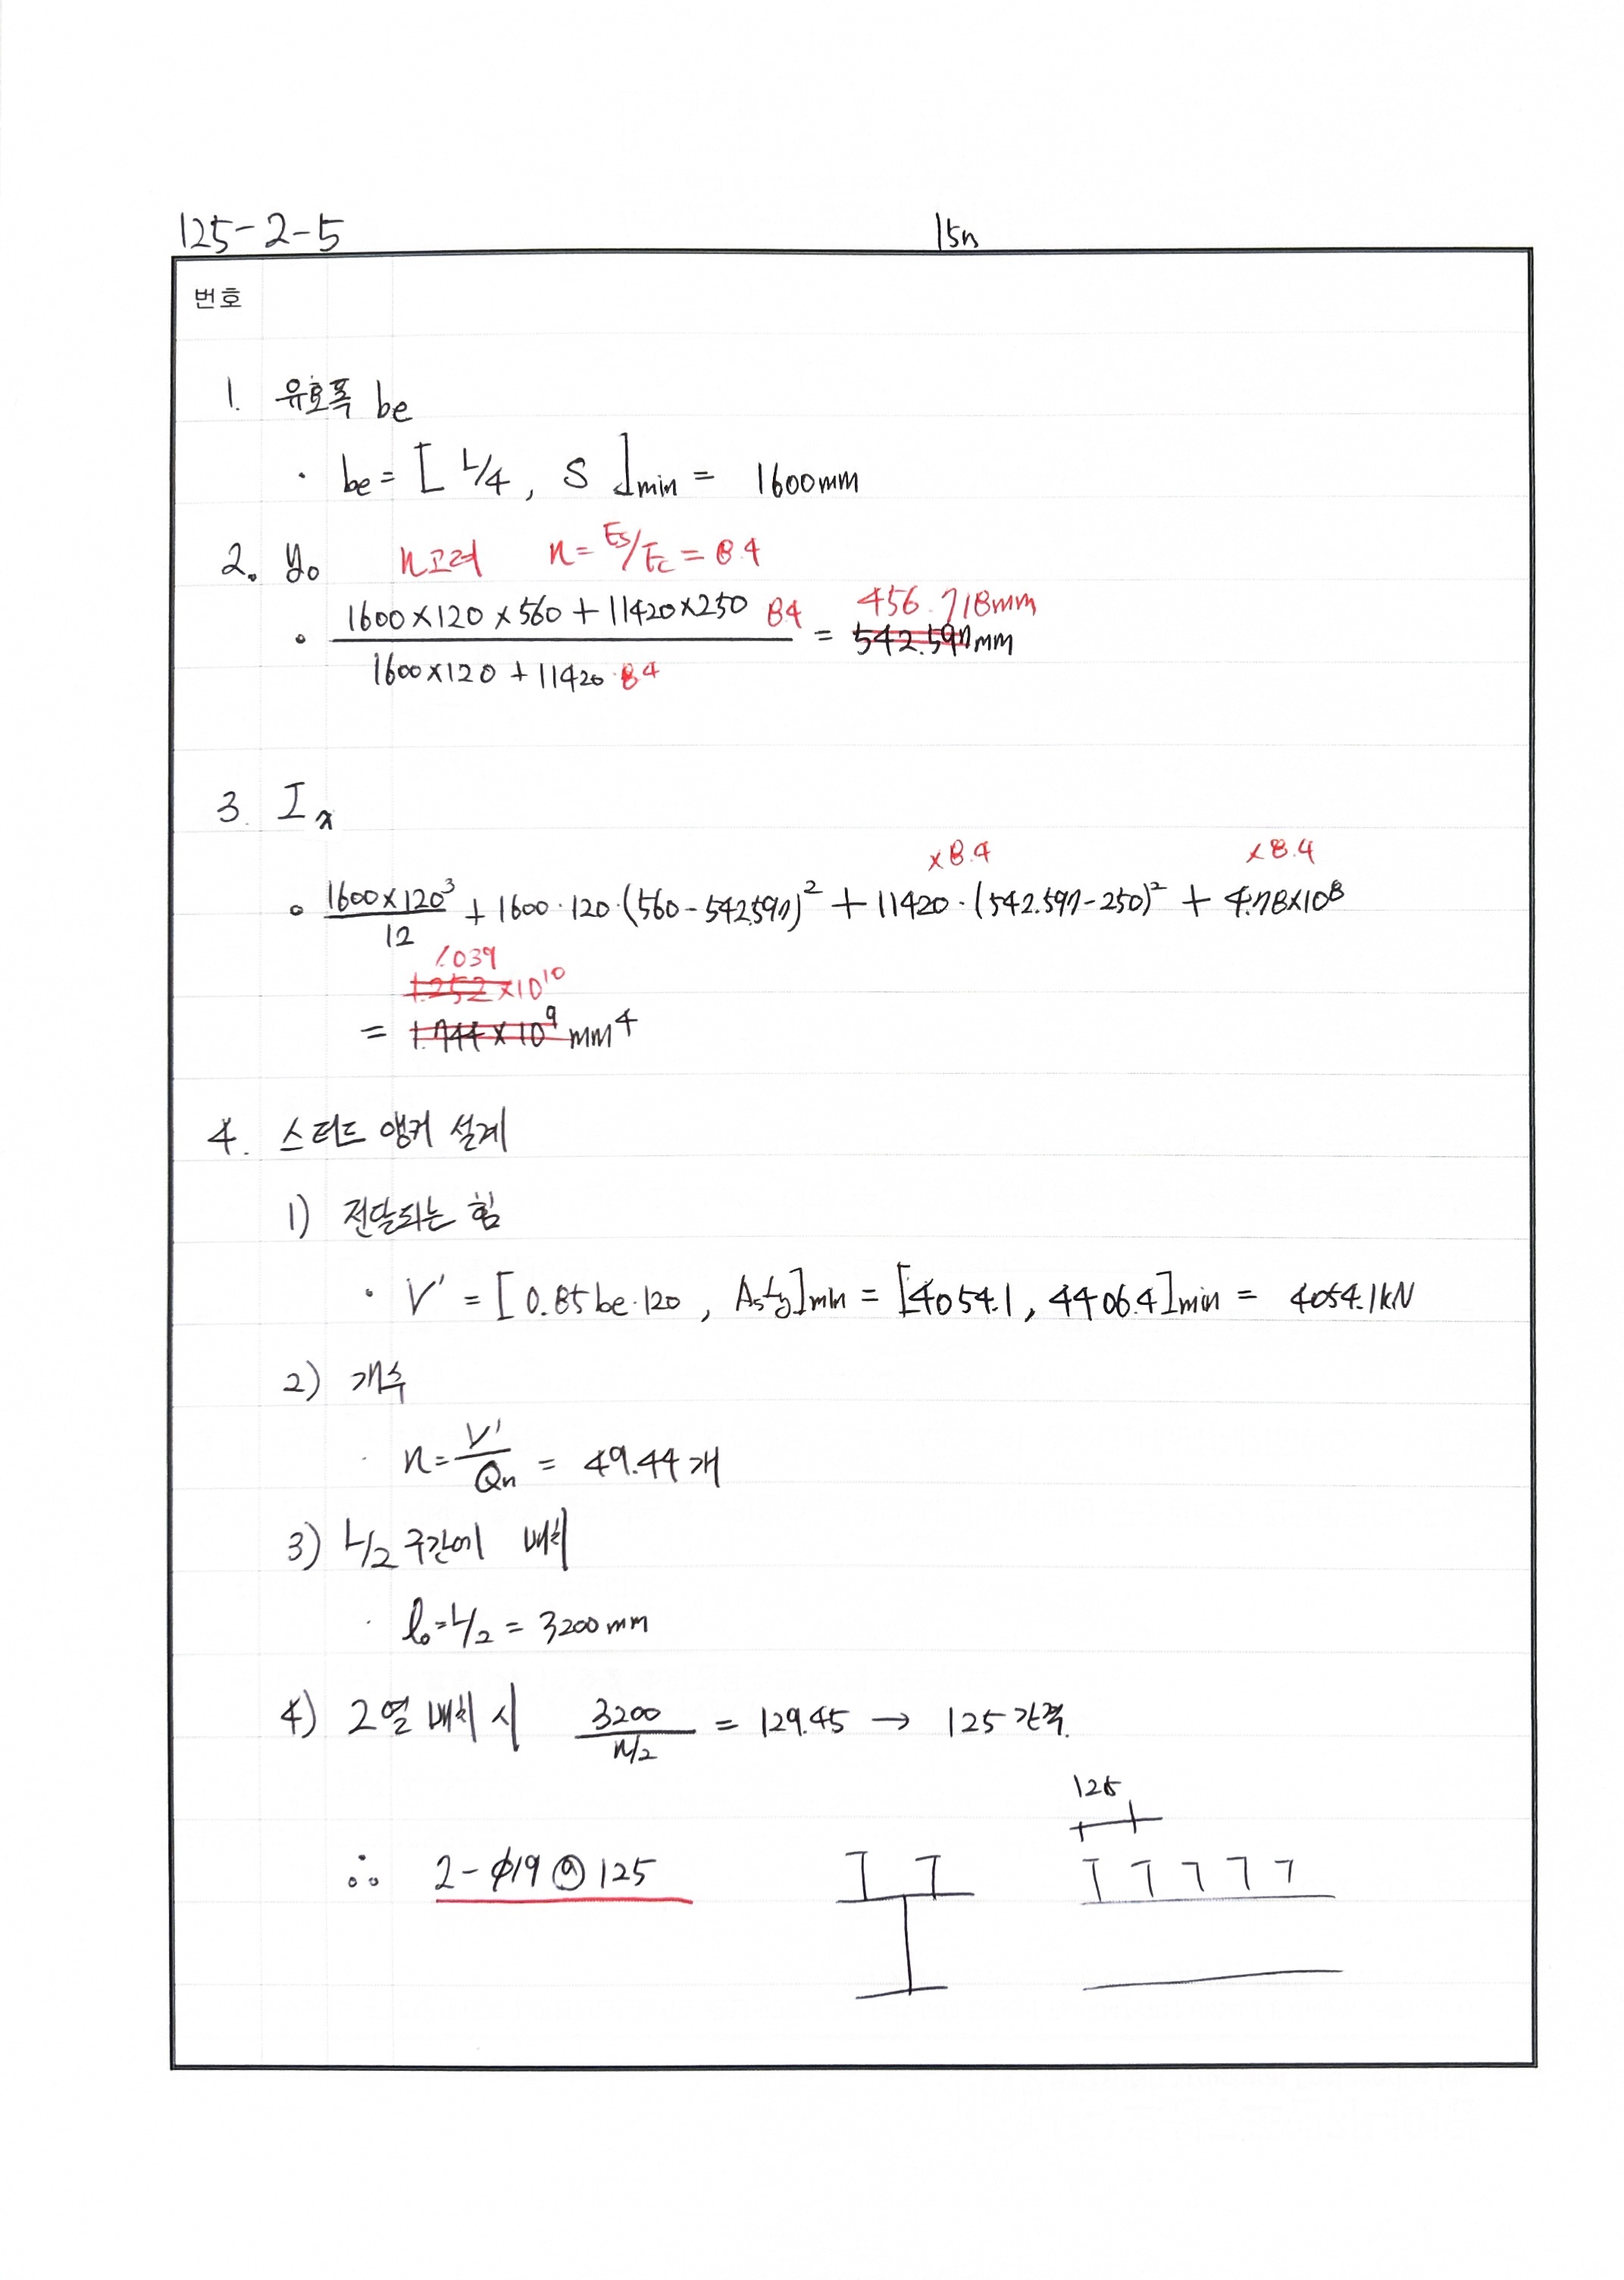 125-2-5 15n
번호
1. 유효폭 be
· be = [ L/4, S ]min = 1600mm
2. y₀ n고려 n = Es/Ec = 8.4
· (1600×120×560 + 11420×250 8.4) / (1600×120 + 11420·8.4) = 456.718mm 542.597mm
3. Ix
×8.4 ×8.4
· 1600×120³/12 + 1600·120·(560-542.597)² + 11420·(542.597-250)² + 4.78×10⁸
1.039
1.252×10¹⁰
= 1.744×10⁹ mm⁴
4. 스터드 앵커 설계
1) 전달되는 힘
· V' = [0.85be·120, Asfy]min = [4054.1, 4406.4]min = 4054.1kN
2) 개수
· n = V'/Qn = 49.44개
3) L/2 구간에 배치
· l₀ = L/2 = 3200mm
4) 2열 배치 시 3200/(n/2) = 129.45 → 125 간격.
125
∴ 2-φ19@125